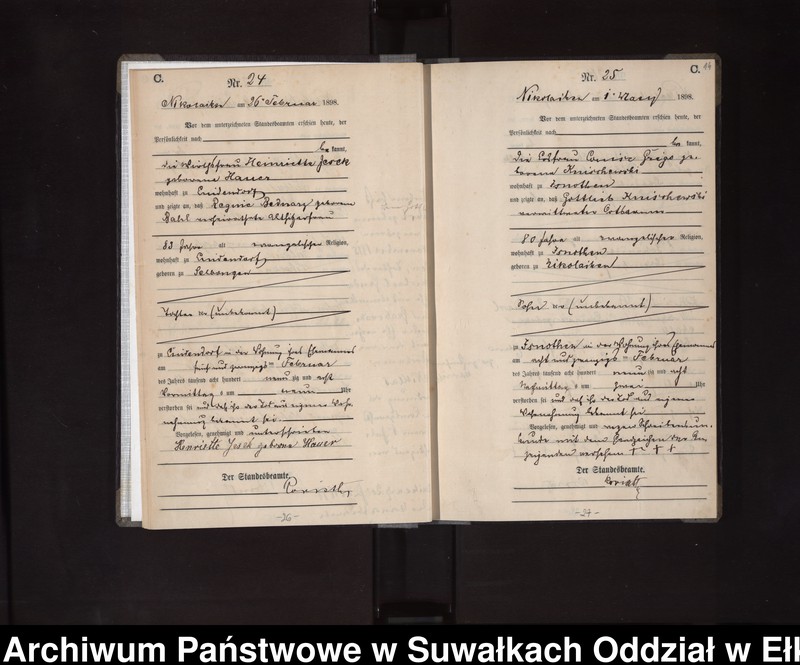 C.
Nr. 24
Nikolaiken am 26 Februar 1898.
Vor dem unterzeichneten Standesbeamten erschien heute, der
Persönlichkeit nach
be kannt,
die Wirthsfrau Henriette Jesch
geborene Hauer
wohnhaft zu Lindendorf
und zeigte an, daß Regine Bednarz geborene
Bahl verheirathete Altsitzerfrau
83 Jahre alt evangelischer Religion,
wohnhaft zu Lindendorf
geboren zu Selbongen
Tochter der (unbekannt)
zu Lindendorf in der Wohnung ihres Ehemannes
am fünf und zwanzigsten Februar
des Jahres tausend acht hundert neun zig und acht
Vormittags um neun Uhr
verstorben sei und daß ihr der Tod aus eigener Wahr-
nehmung bekannt sei
Vorgelesen, genehmigt und unterschrieben
Henriette Jesch geborene Hauer
Der Standesbeamte.
-26-
C. 14
Nr. 25
Nikolaiken am 1. 1898.
Vor dem unterzeichneten Standesbeamten erschien heute, der
Persönlichkeit nach
be kannt,
die Losfrau Louise ge-
borene Kruschewski
wohnhaft zu Isnothen
und zeigte an, daß Gottlieb Kruschewski
verwittweter
80 Jahre alt evangelischer Religion,
wohnhaft zu Isnothen
geboren zu Nikolaiken
Sohn der (unbekannt)
zu Isnothen in der Wohnung ihres Ehemannes
am acht und zwanzigsten Februar
des Jahres tausend acht hundert neun zig und acht
Nachmittags um zwei Uhr
verstorben sei und daß ihr der Tod aus eigener
Wahrnehmung bekannt sei
Vorgelesen, genehmigt und wegen Schreibensun-
kunde mit dem Handzeichen der An-
zeigenden versehen † † †
Der Standesbeamte.
-27-
Archiwum Państwowe w Suwałkach Oddział w Ełk